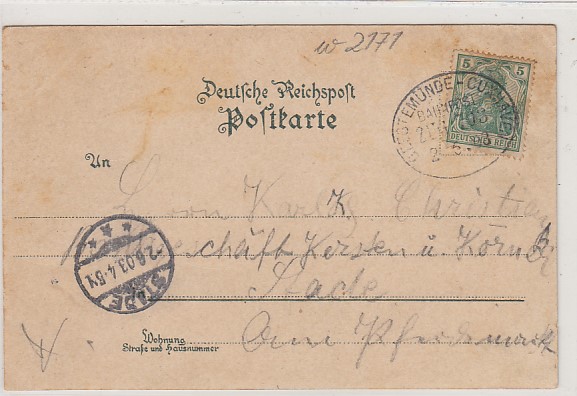 w 2171
Deutsche Reichspost
Postkarte
5
DEUTSCHES REICH
GEESTEMÜNDE-CUXHAVEN
BAHNPOST
An
Herrn Karl K. Christian
Geschäft Kersten u. Körner
Stade
Am Pferdemarkt
STADE
2.6.03.4-5N.
Wohnung
Straße und Hausnummer